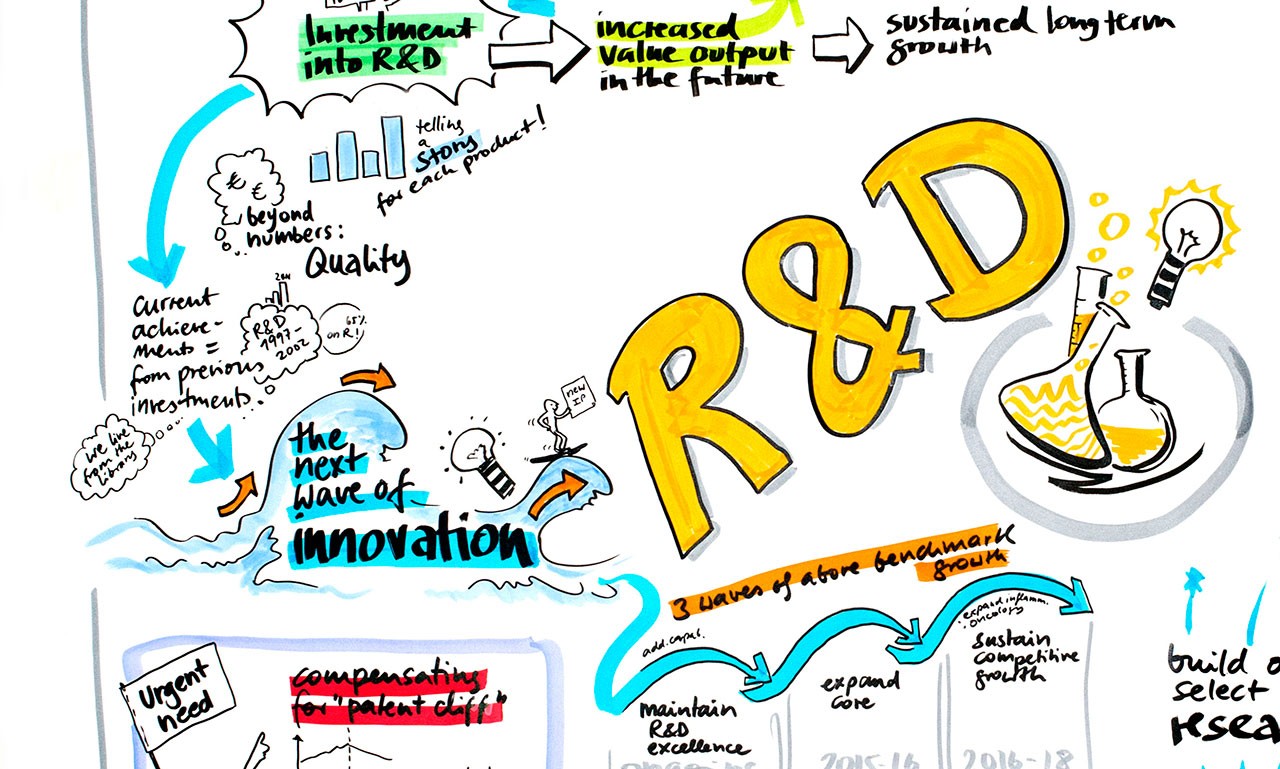 Investment
into R&D
increased
value output
in the future
sustained long term
growth
telling
a
story
for each product!
€ €
beyond
numbers:
Quality
current
achieve-
ments =
from previous
investments.
R&D
1997-
2002
65%
on R!
we live
from the
library
the
next
wave of
innovation
new
IP
R&D
3 waves of above benchmark
growth
maintain
R&D
excellence
expand
core
expand inflamm.
oncology
sustain
competitive
growth
2015-16
2016-18
build
select
Urgent
need
compensating
for "patent cliff"